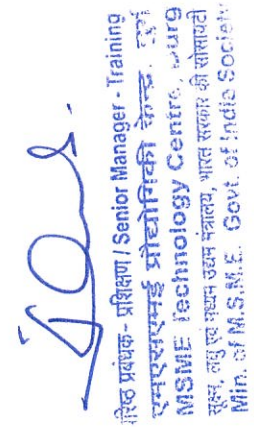 वरिष्ठ प्रबंधक - प्रशिक्षण / Senior Manager - Training
एमएसएमई प्रौद्योगिकी केन्द्र, दुर्ग
MSME Technology Centre, Durg
सूक्ष्म, लघु एवं मध्यम उद्यम मंत्रालय, भारत सरकार की सोसायटी
Min. of M.S.M.E. Govt. of India Society